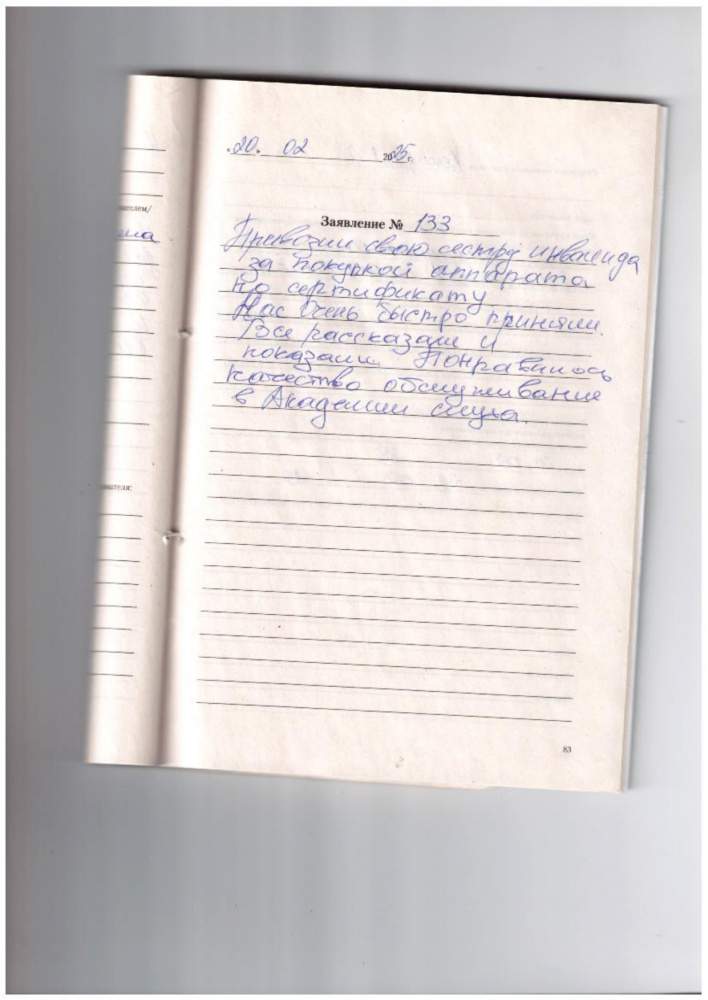 20. 02 2025 г.
ателем/
Заявление № 133
Превозили свою сестру инвалида
за покупкой аппарата
по сертификату.
Нас очень быстро приняли.
Все рассказали и
показали. Понравилось
качество обслуживание
в Академии слуха.
ователя:
83